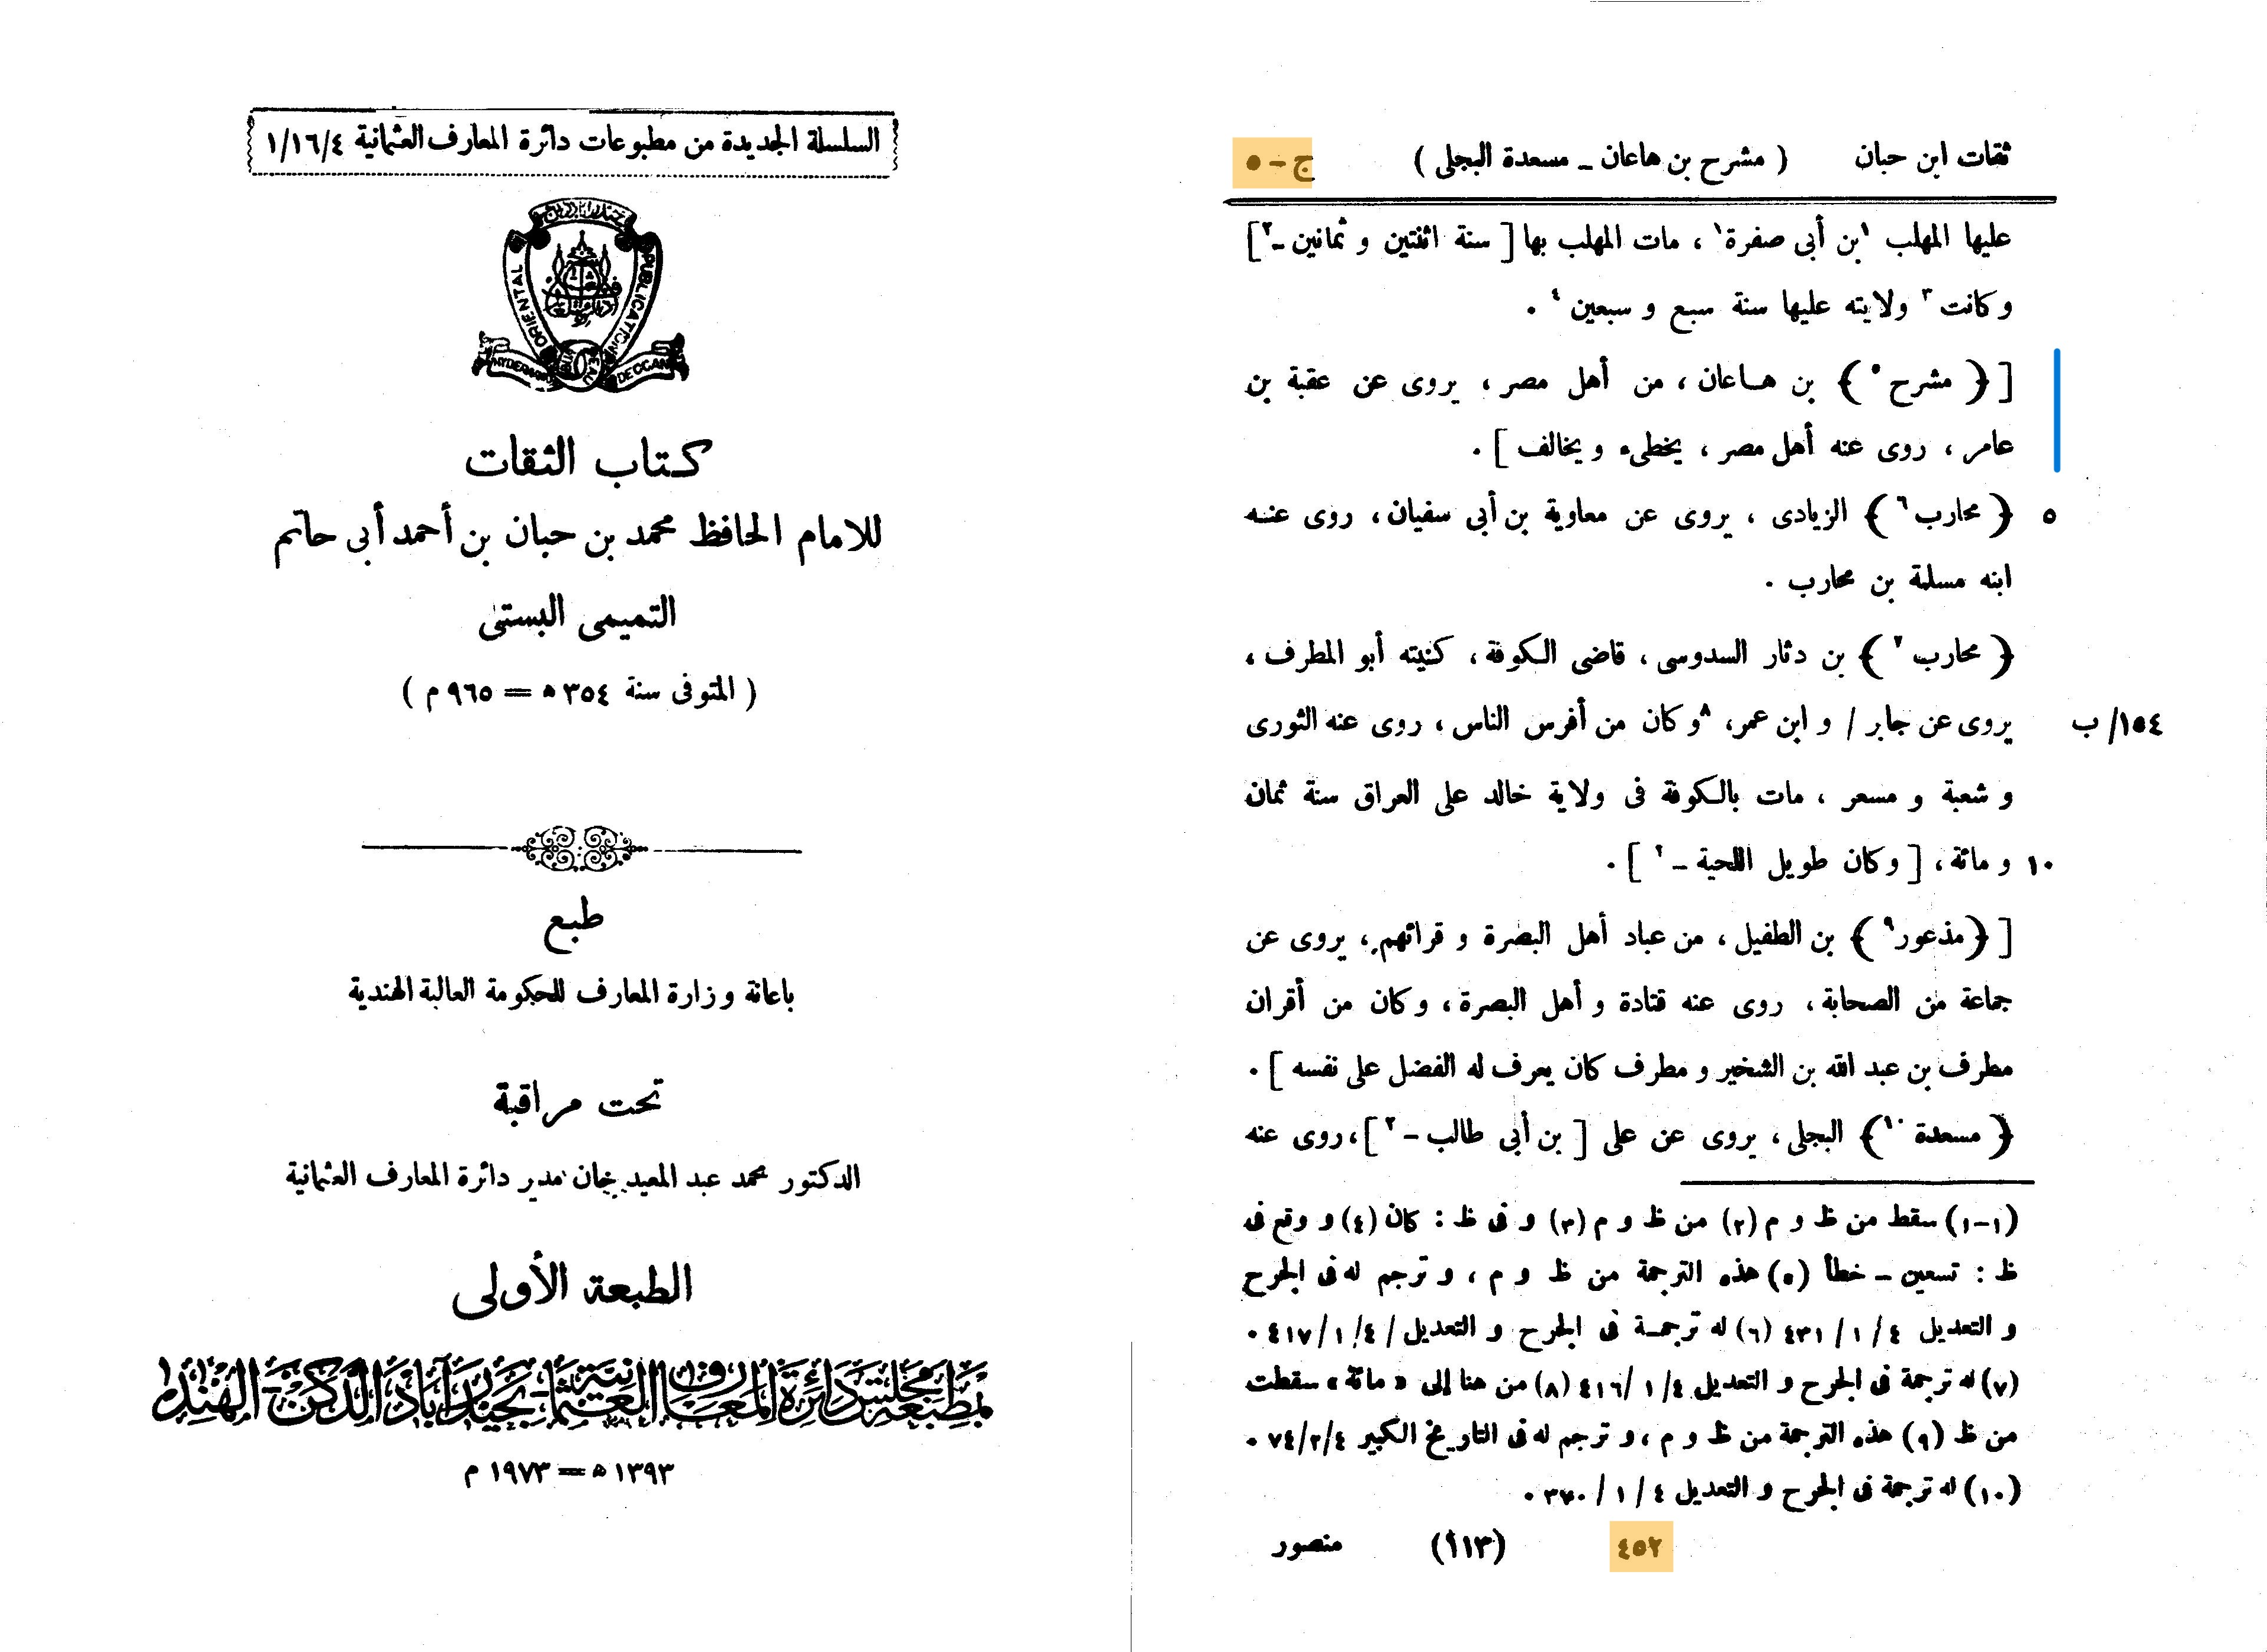 ثقات ابن حبان ( مشرح بن هاعان – مسعدة البجلى ) ج – ٥
عليها المهلب ١بن أبى صفرة١ ، مات المهلب بها [ سنة اثنتين و ثمانين –٢ ]
و كانت ٣ ولايته عليها سنة سبع و سبعين ٤ .
[ ﴿ مشرح ٥ ﴾ بن هاعان ، من أهل مصر ، يروى عن عقبة بن
عامر ، روى عنه أهل مصر ، يخطىء و يخالف ] .
٥ ﴿ محارب ٦ ﴾ الزيادى ، يروى عن معاوية بن أبى سفيان ، روى عنه
ابنه مسلمة بن محارب .
﴿ محارب ٧ ﴾ بن دثار السدوسى ، قاضى الكوفة ، كنيته أبو المطرف ،
١٥٤/ ب يروى عن جابر / و ابن عمر، ٨و كان من أفرس الناس ، روى عنه الثورى
و شعبة و مسعر ، مات بالكوفة فى ولاية خالد على العراق سنة ثمان
١٠ و مائة ، [ و كان طويل اللحية –٢ ] .
[ ﴿ مذعور ٩ ﴾ بن الطفيل ، من عباد أهل البصرة و قرائهم ، يروى عن
جماعة من الصحابة ، روى عنه قتادة و أهل البصرة ، و كان من أقران
مطرف بن عبد الله بن الشخير و مطرف كان يعرف له الفضل على نفسه ] .
﴿ مسعدة ١٠ ﴾ البجلى ، يروى عن على [ بن أبى طالب –٢ ] ، روى عنه
(١-١) سقط من ظ و م (٢) من ظ و م (٣) و فى ظ : كان (٤) و وقع فى
ظ : تسعين – خطأ (٥) هذه الترجمة من ظ و م ، و ترجم له فى الجرح
و التعديل ٤ / ١ / ٤٣١ (٦) له ترجمة فى الجرح و التعديل / ٤ / ١ / ٤١٧ .
(٧) له ترجمة فى الجرح و التعديل ٤ / ١ / ٤١٦ (٨) من هنا إلى « مائة » سقطت
من ظ (٩) هذه الترجمة من ظ و م ، و ترجم له فى التاريخ الكبير ٤ /٢ / ٧٤ .
(١٠) له ترجمة فى الجرح و التعديل ٤ / ١ / ٣٧٠ .
٤٥٢ (١١٣) منصور
السلسلة الجديدة من مطبوعات دائرة المعارف العثمانية ١/١٦/٤
ORIENTAL PUBLICATION
HYDERABAD BUREAU DECCAN
كتاب الثقات
للامام الحافظ محمد بن حبان بن أحمد أبى حاتم
التميمى البستى
( المتوفى سنة ٣٥٤ ھ = ٩٦٥ م )
طبع
باعانة و زارة المعارف للحكومة العالية الهندية
تحت مراقبة
الدكتور محمد عبد المعيد خان مدير دائرة المعارف العثمانية
الطبعة الأولى
بمطبعة مجلس دائرة المعارف العثمانية بحيدرآباد الدكن الهند
١٣٩٣ ھ = ١٩٧٣ م